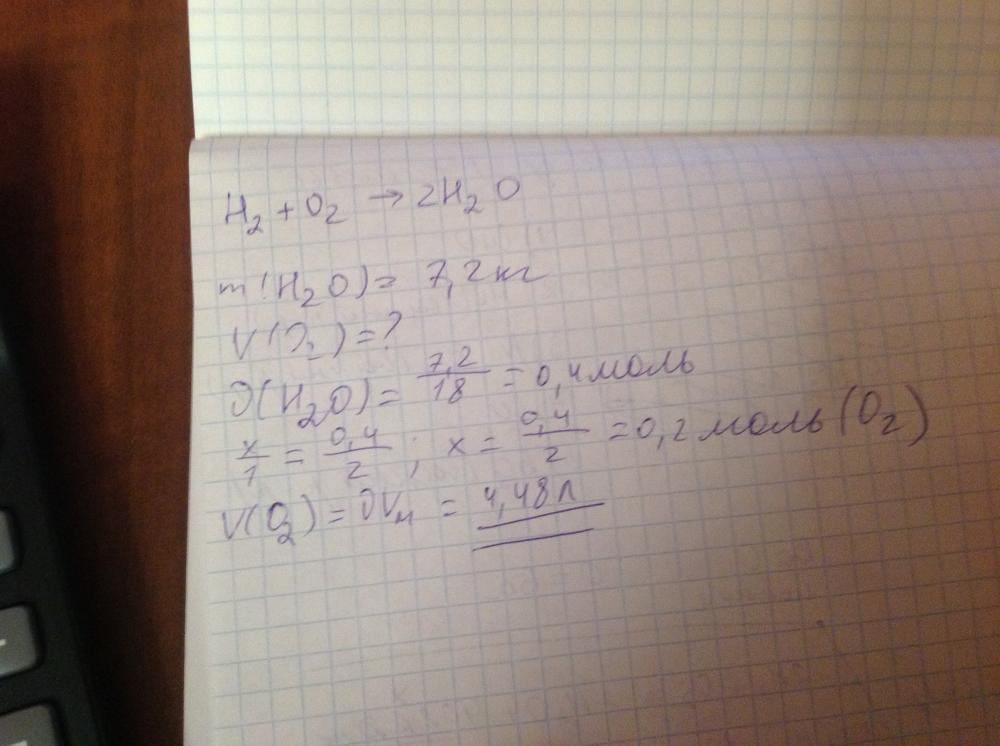 H₂ + O₂ → 2H₂O
m(H₂O) = 7,2 кг
V(O₂) = ?
ν(H₂O) = 7,2/18 = 0,4 моль
x/1 = 0,4/2 ; x = 0,4/2 = 0,2 моль (O₂)
V(O₂) = νVм = 4,48 л